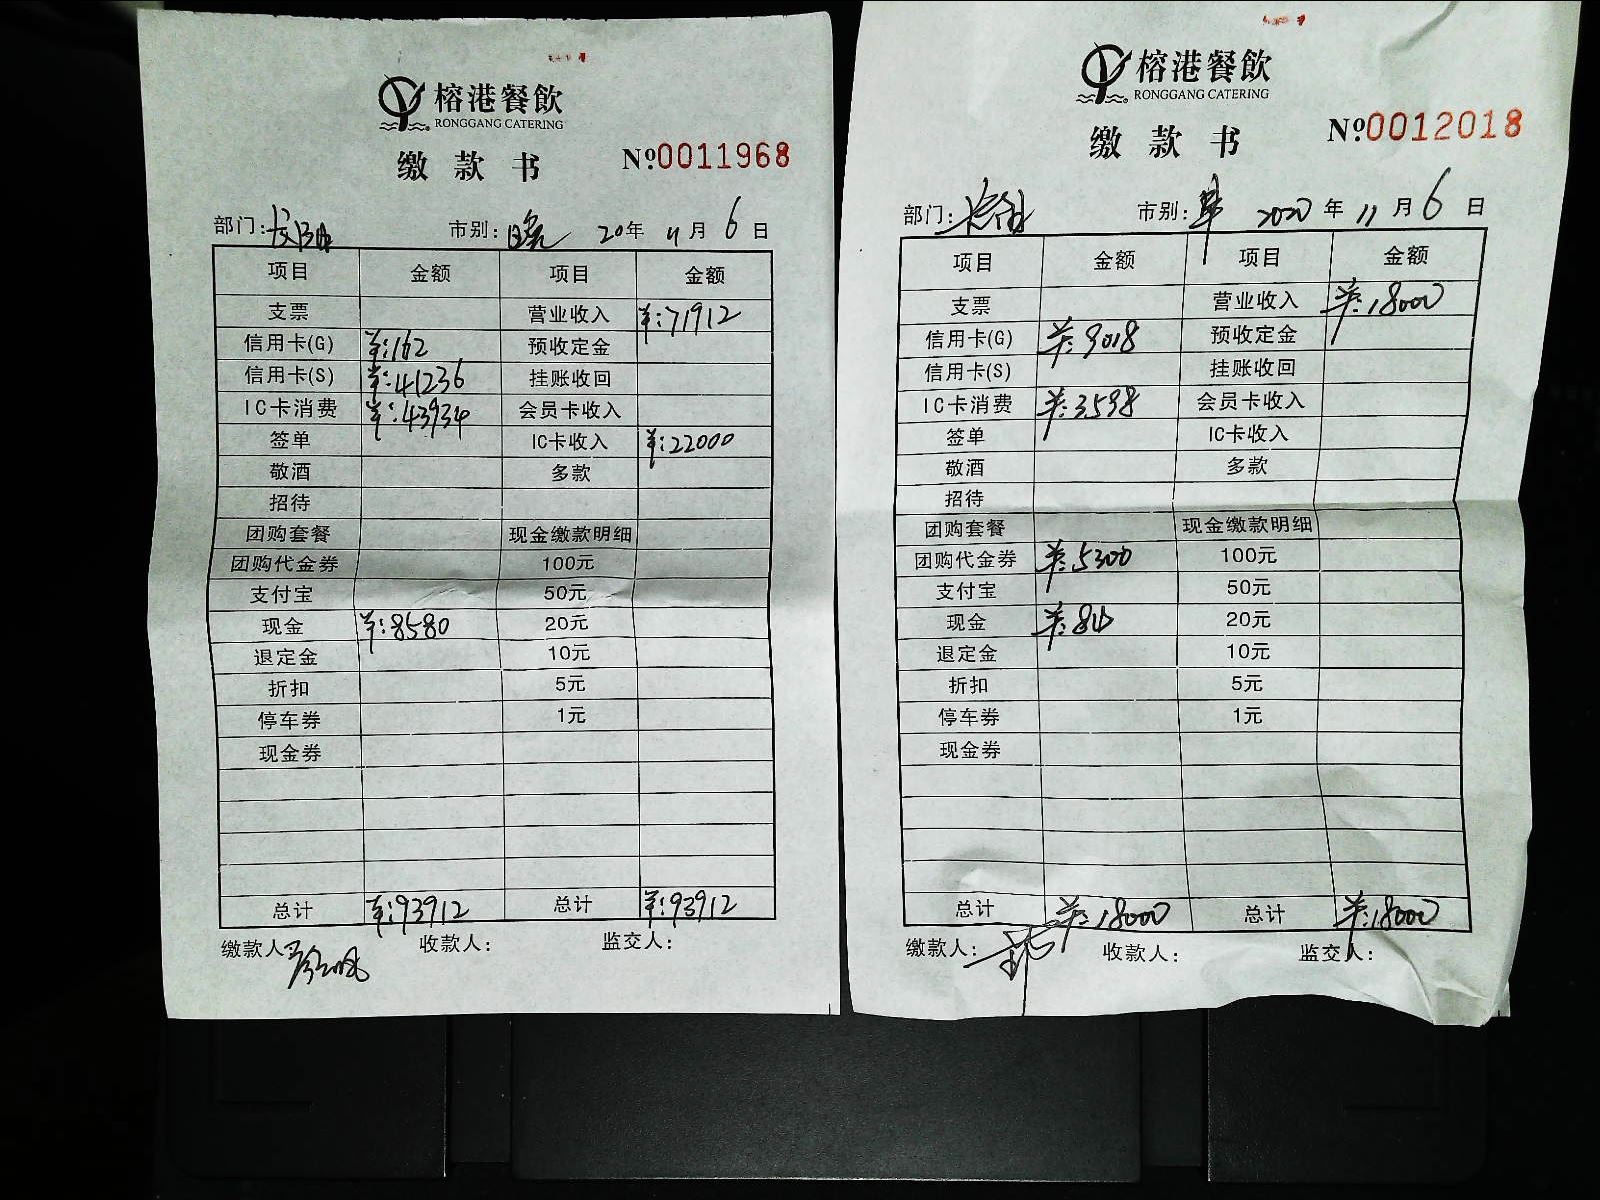 榕港餐飲
RONGGANG CATERING
缴款书
№0011968
部门: 市别:晚 20年 11月 6日
项目 金额 项目 金额
支票 营业收入 ¥:71912
信用卡(G) ¥:162 预收定金
信用卡(S) ¥:41236 挂账收回
IC卡消费 ¥:43934 会员卡收入
签单 IC卡收入 ¥:22000
敬酒 多款
招待
团购套餐 现金缴款明细
团购代金券 100元
支付宝 50元
现金 ¥:8580 20元
退定金 10元
折扣 5元
停车券 1元
现金券
总计 ¥:93912 总计 ¥:93912
缴款人 收款人: 监交人:
榕港餐飲
RONGGANG CATERING
缴款书
№0012018
部门: 市别:早 2020年 11月 6日
项目 金额 项目 金额
支票 营业收入 ¥:18000
信用卡(G) ¥:9018 预收定金
信用卡(S) 挂账收回
IC卡消费 ¥:3598 会员卡收入
签单 IC卡收入
敬酒 多款
招待
团购套餐 现金缴款明细
团购代金券 ¥:5300 100元
支付宝 50元
现金 ¥:84 20元
退定金 10元
折扣 5元
停车券 1元
现金券
总计 ¥:18000 总计 ¥:18000
缴款人: 收款人: 监交人: